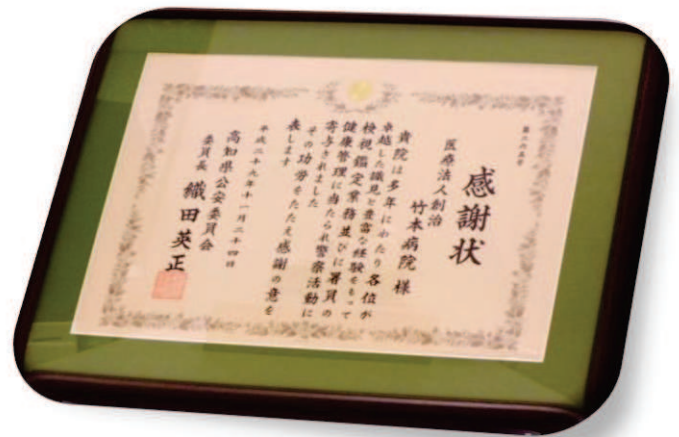 感謝状
医療法人創治
竹本病院様
貴院は多年にわたり各位が
卓越した識見と豊富な経験をもって
検視鑑定業務並びに署員の
健康管理に当たられ警察活動に
寄与されました
その功労をたたえ感謝の意を
表します
平成二十九年十一月二十四日
高知県公安委員会
委員長 織田英正